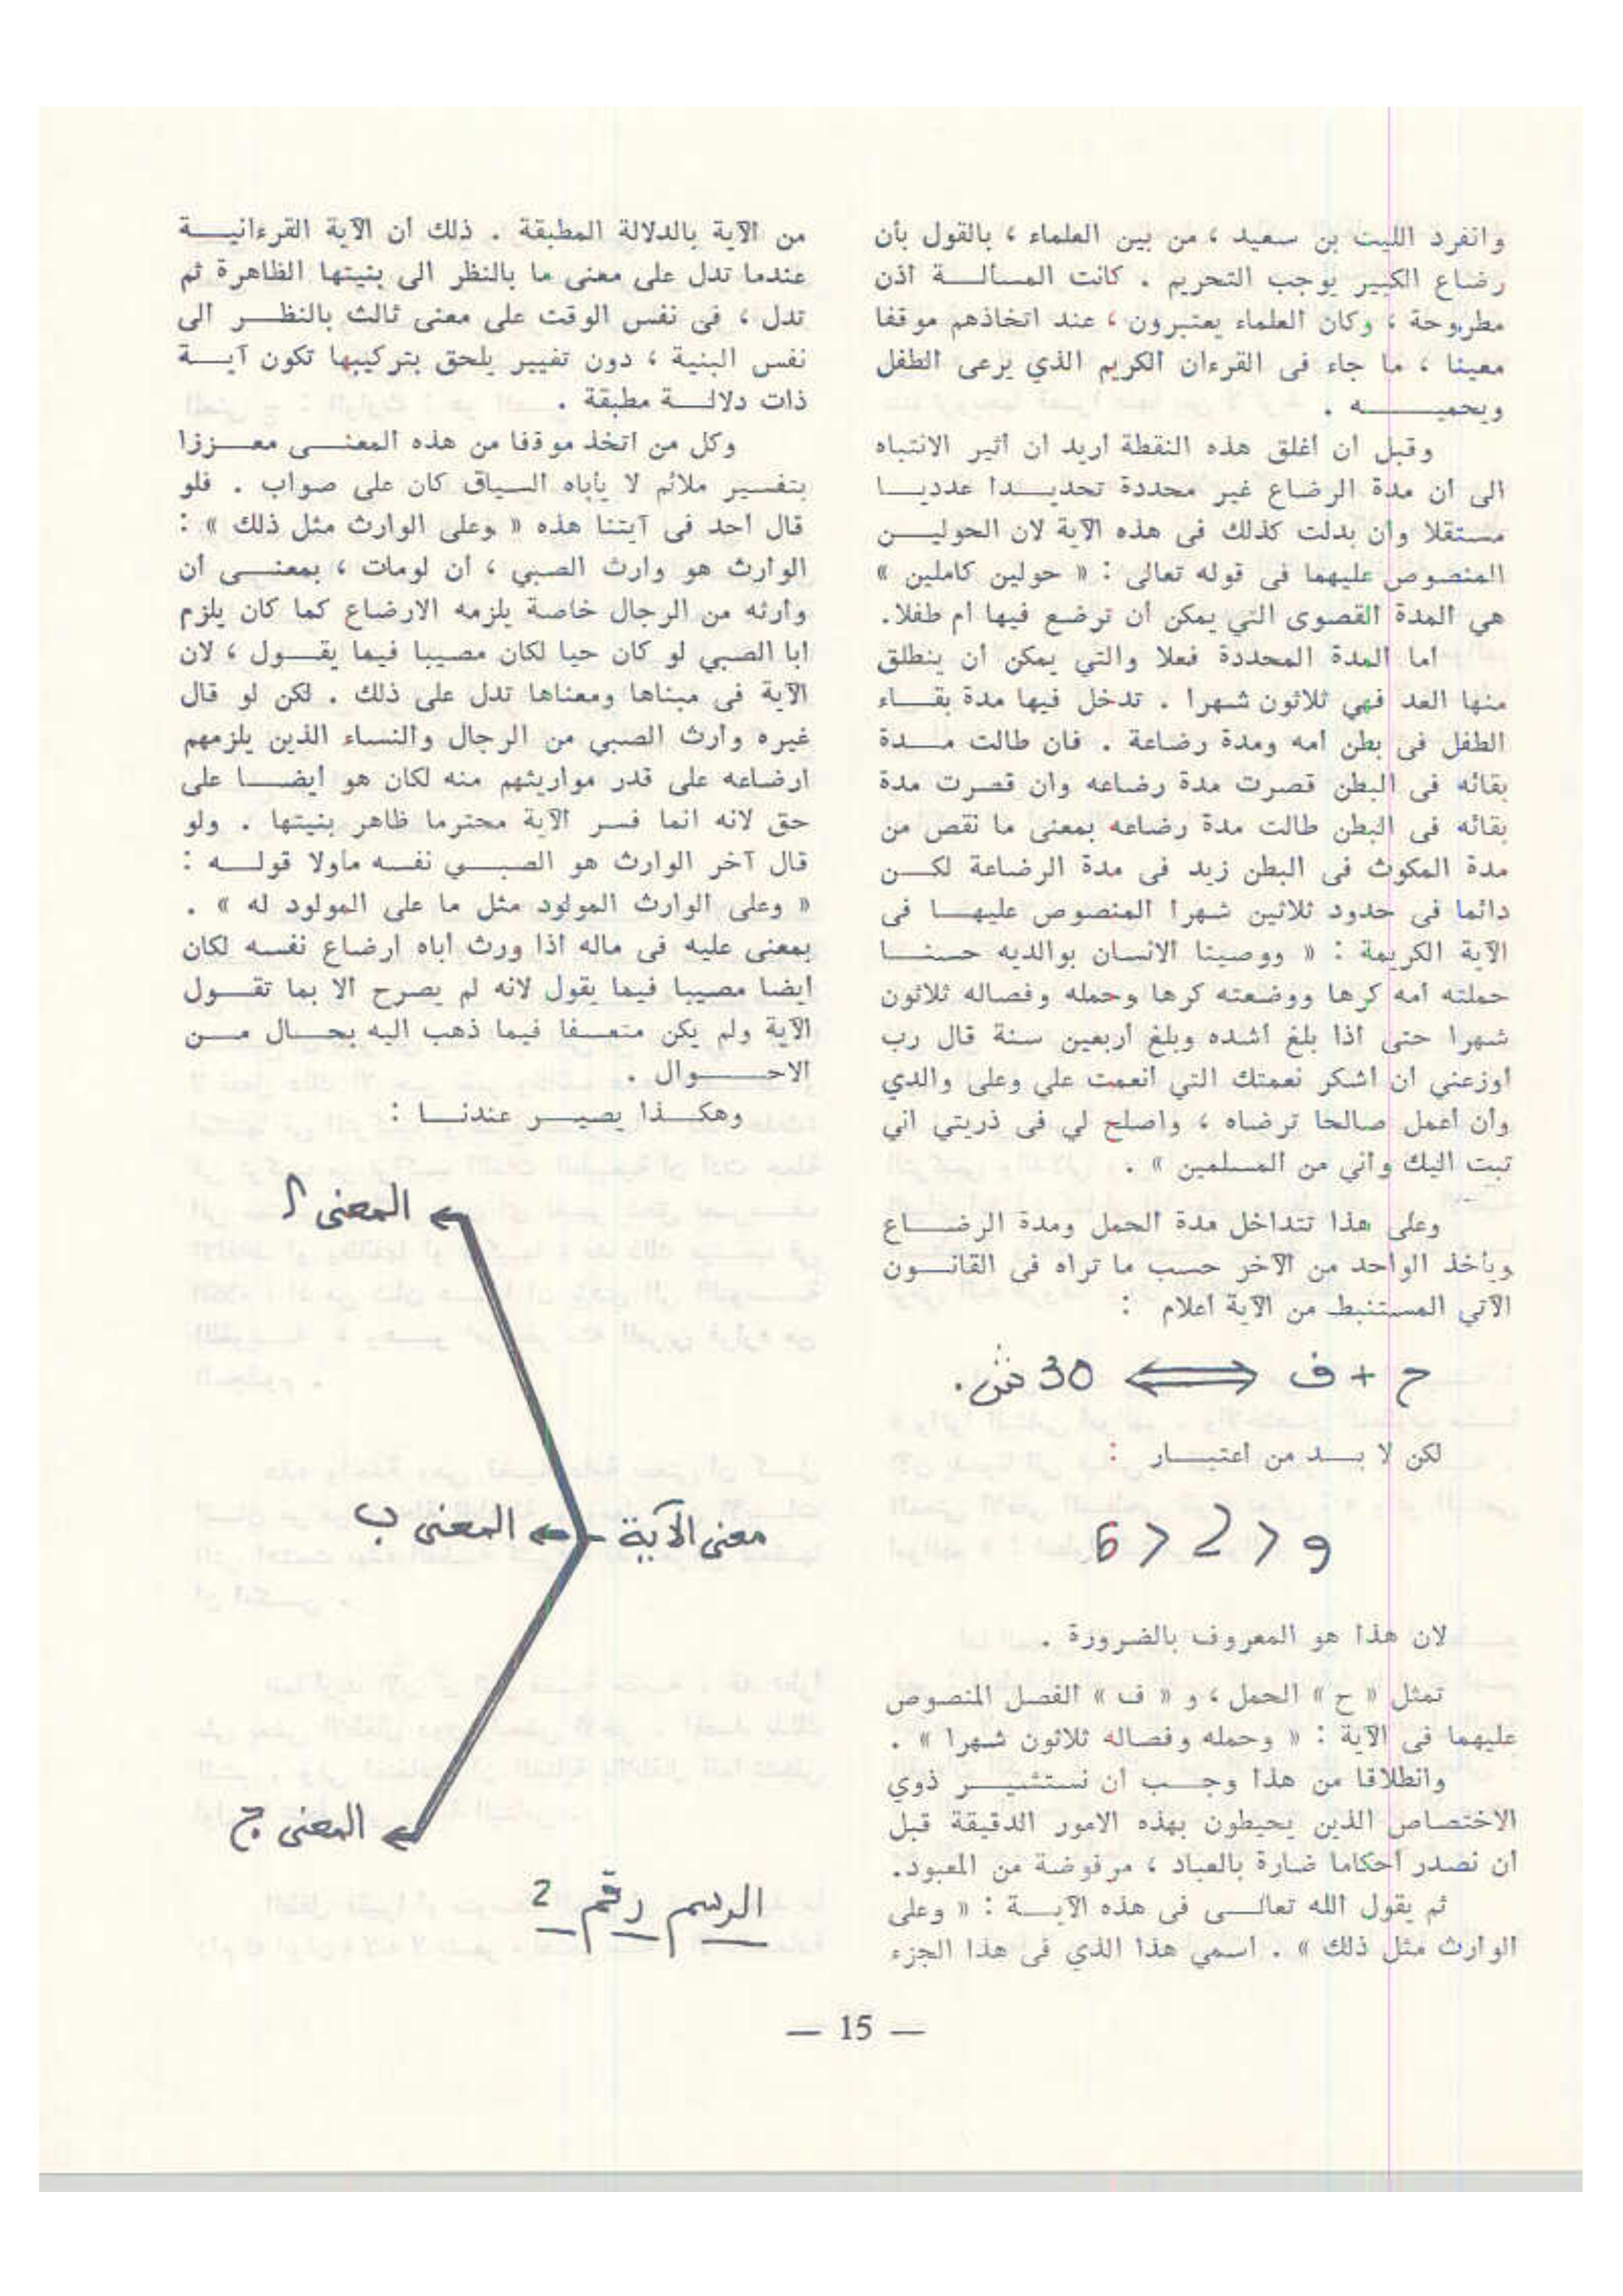 وانفرد الليث بن سعيد ، من بين العلماء ، بالقول بأن
رضاع الكبير يوجب التحريم . كانت المسالـة اذن
مطروحة ، وكان العلماء يعتبرون ، عند اتخاذهم موقفا
معينا ، ما جاء فى القرءان الكريم الذي يرعى الطفل
ويحميـــه .
وقبل ان اغلق هذه النقطة أريد ان اثير الانتباه
الى ان مدة الرضاع غير محددة تحديـدا عدديـا
مستقلا وان بدلت كذلك فى هذه الآية لان الحوليـن
المنصوص عليهما فى قوله تعالى : « حولين كاملين »
هي المدة القصوى التي يمكن أن ترضع فيها ام طفلا.
اما المدة المحددة فعلا والتي يمكن أن ينطلق
منها العد فهي ثلاثون شهرا . تدخل فيها مدة بقـاء
الطفل فى بطن امه ومدة رضاعة . فان طالت مـدة
بقائه فى البطن قصرت مدة رضاعه وان قصرت مدة
بقائه فى البطن طالت مدة رضاعه بمعنى ما نقص من
مدة المكوث فى البطن زيد فى مدة الرضاعة لكـن
دائما فى حدود ثلاثين شهرا المنصوص عليهـا فى
الآية الكريمة : « ووصينا الانسان بوالديه حسنـا
حملته امه كرها ووضعته كرها وحمله وفصاله ثلاثون
شهرا حتى اذا بلغ اشده وبلغ أربعين سنة قال رب
اوزعني ان اشكر نعمتك التي انعمت علي وعلى والدي
وان اعمل صالحا ترضاه ، واصلح لي فى ذريتي اني
تبت اليك واني من المسلمين » .
وعلى هذا تتداخل مدة الحمل ومدة الرضـاع
ويأخذ الواحد من الآخر حسب ما تراه فى القانـون
الآتي المستنبط من الآية اعلام :
ح + ف ⟺ 30 ش.
لكن لا بـد من اعتبـار :
لان هذا هو المعروف بالضرورة .
تمثل « ح » الحمل ، و « ف » الفصل المنصوص
عليهما فى الآية : « وحمله وفصاله ثلاثون شهرا » .
وانطلاقا من هذا وجـب ان نستشيـر ذوي
الاختصاص الذين يحيطون بهذه الامور الدقيقة قبل
ان نصدر احكاما ضارة بالعباد ، مرفوضة من المعبود.
ثم يقول الله تعالـى فى هذه الآيـة : « وعلى
الوارث مثل ذلك » . اسمي هذا الذي فى هذا الجزء
من الآية بالدلالة المطبقة . ذلك ان الآية القرءانيـة
عندما تدل على معنى ما بالنظر الى بنيتها الظاهرة ثم
تدل ، فى نفس الوقت على معنى ثالث بالنظـر الى
نفس البنية ، دون تغيير يلحق بتركيبها تكون آيـة
ذات دلالـة مطبقة .
وكل من اتخذ موقفا من هذه المعنـى معـززا
بتفسير ملائم لا يأباه السياق كان على صواب . فلو
قال احد فى آيتنا هذه « وعلى الوارث مثل ذلك » :
الوارث هو وارث الصبي ، ان لومات ، بمعنـى ان
وارثه من الرجال خاصة يلزمه الارضاع كما كان يلزم
ابا الصبي لو كان حيا لكان مصيبا فيما يقـول ، لان
الآية فى مبناها ومعناها تدل على ذلك . لكن لو قال
غيره وارث الصبي من الرجال والنساء الذين يلزمهم
ارضاعه على قدر مواريثهم منه لكان هو ايضـا على
حق لانه انما فسر الآية محترما ظاهر بنيتها . ولو
قال آخر الوارث هو الصبـي نفسه ماولا قولـه :
« وعلى الوارث المولود مثل ما على المولود له » .
بمعنى عليه فى ماله اذا ورث اباه ارضاع نفسه لكان
ايضا مصيبا فيما يقول لانه لم يصرح الا بما تقـول
الآية ولم يكن متعسفا فيما ذهب اليه بحـال مـن
الاحـوال .
وهكـذا يصيـر عندنـا :
المعنى أ
معنى الآية
المعنى ب
المعنى ج
الرسم رقم 2
— 15 —